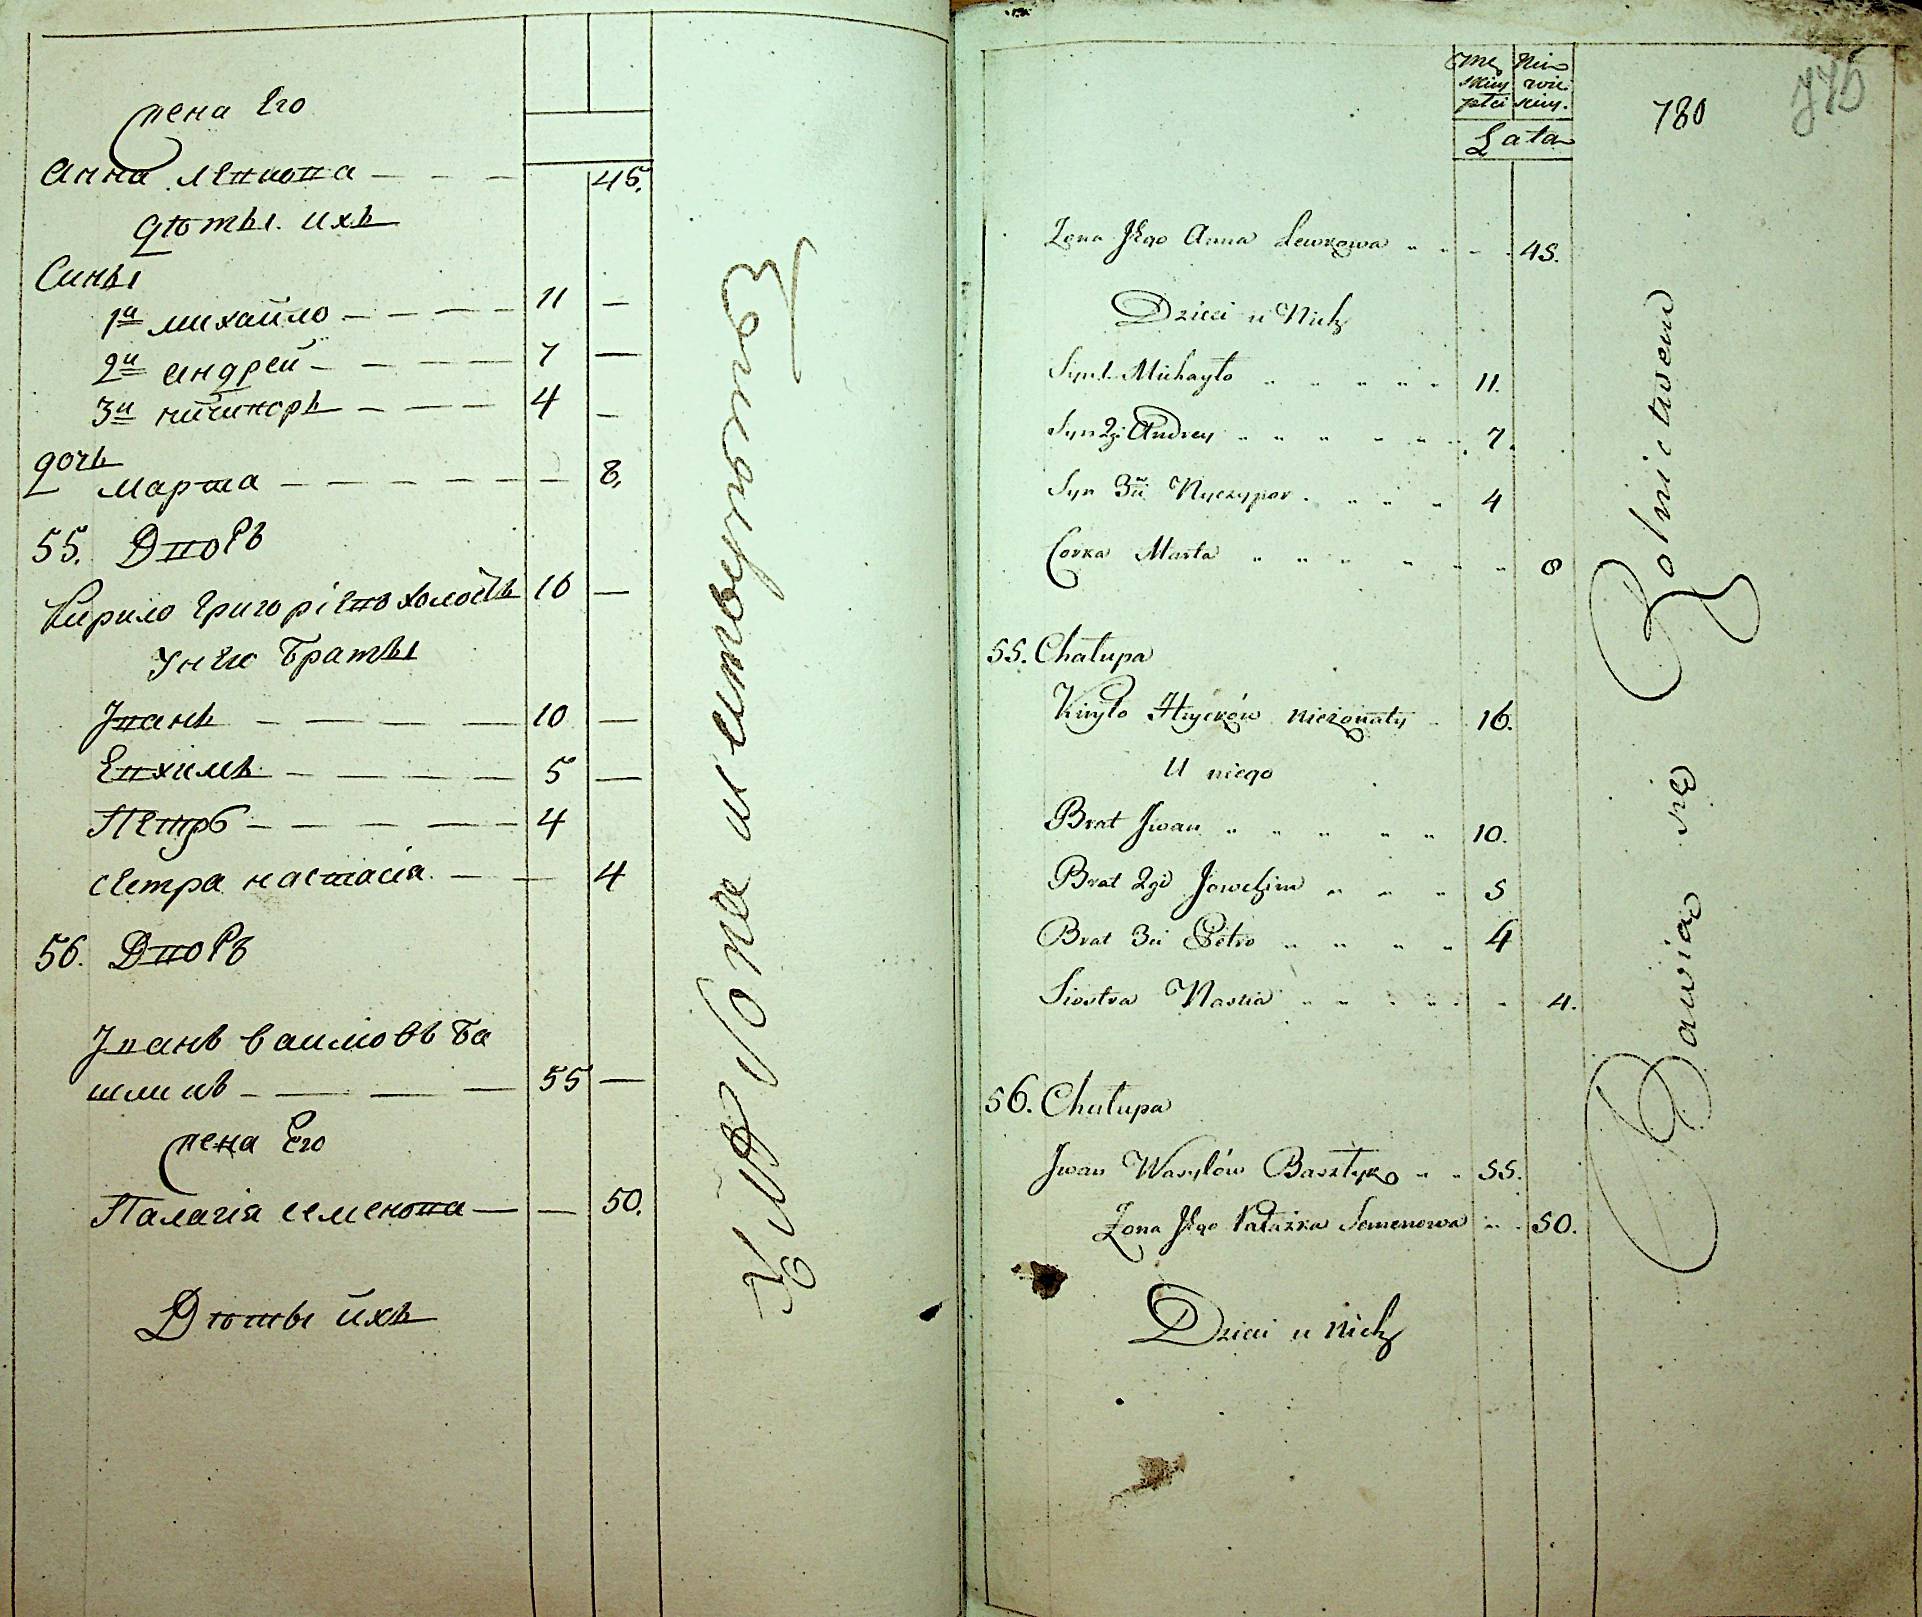 жена Его
Анна Левкова — — — 45.
Дѣтьı ихъ
Синьı
1й Михайло — — — — 11 —
2й Андрей — — — — 7 —
3й Ничипоръ — — — — 4 —
дочь
Марта — — — — — — 8.
55. Дворъ
Кирило Григоріевъ холостъ 16 —
У него братьı
Іванъ — — — — 10 —
Евхимъ — — — — 5 —
Петръ — — — — — 4
сестра Настасія — — 4
56. Дворъ
Іванъ Василовъ Ба
штикъ — — — — 55 —
жена Его
Палагія Семенова — — 50.
Дѣтьı ихъ
Męz
skiey
płci
Nie
wie
skiey.
Lata
780
776
Zona Jego Anna Lewkowa 45.
Dzieci u Nich
Syn 1. Michayło 11.
Syn 2gi Andrey 7.
Syn 3ci Nyczypor 4
Corka Marta 8
55. Chałupa
Kiryło Hrycków nieżonaty 16.
U niego
Brat Jwan 10.
Brat 2gi Jowchim 5
Brat 3ci Petro 4
Siostra Nastia 4.
56. Chałupa
Jwan Wasylów Basztyk 55.
Zona Jego Pałażka Semenowa 50.
Dzieci u Nich
Bawią się Rolnictwem